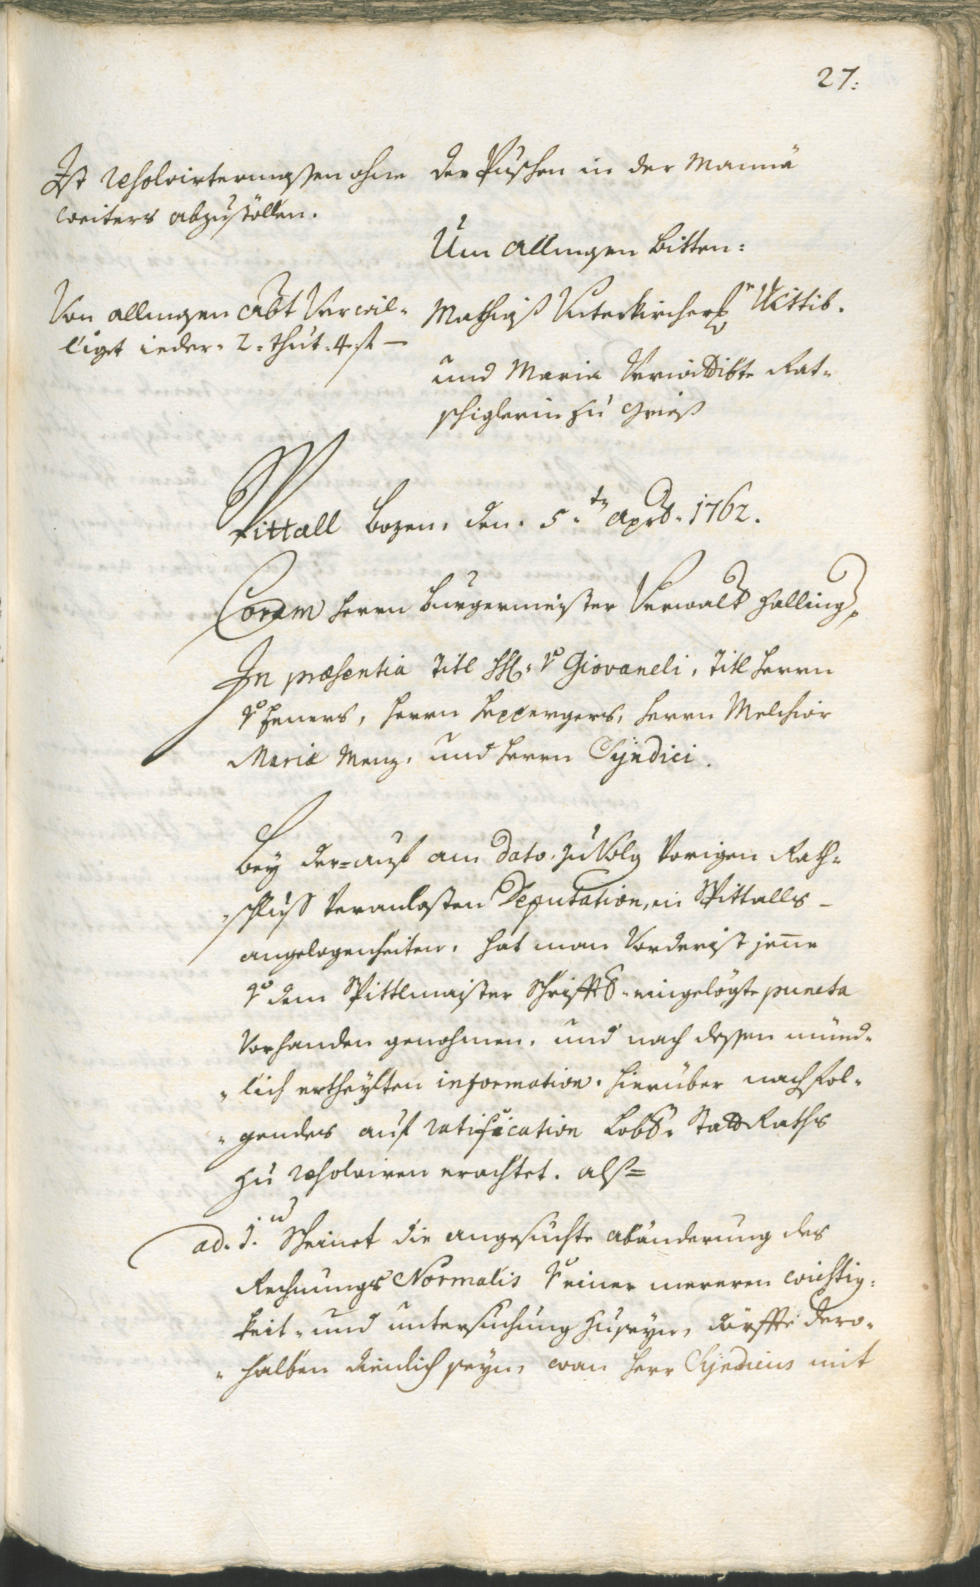 27:
Ist resolvirtermassen ohne
weiters abzustöllen.
der Puschen in der Mannä
Um Allmosen bitten:
Von allmosen Ambt Verwil-
liget ieder. 2. thut. 4. f —
Mathias Unterkirchers Wittib.
und Maria Verwittibte Rat-
schiglerin zu Gries
Spittall Bozen, den. 5.ten Aprl. 1762.
Coram Herrn Burgermeister Verwalt Halling,
In præsentia Titl H: v Giovaneli, Titl Herrn
v Heners, Herrn Hepperger, Herrn Melchior
Mariæ Menz, und Herrn Syndici.
Bey der-auf am Dato zu volg vorigen Rath-
schluss veranlasten Deputation, in Spittalls-
angelegenheiten, hat man vorderist jene
v dem Spittlmaister Schrifftl. eingelögte puncta
vorhanden genohmen, und nach dessen münd-
lich ertheylten information, hierüber nachfol-
gendes auf ratification Lobl. StattRaths
zu resolviren erachtet. als=
ad. 1.um Scheinet die angesuchte abänderung des
Rechnungs Normalis v einer mereren wichtig-
keit- und untersuchung zuseyn, dörffte dero-
halben dienlich seyn, wan Herr Syndicus mit